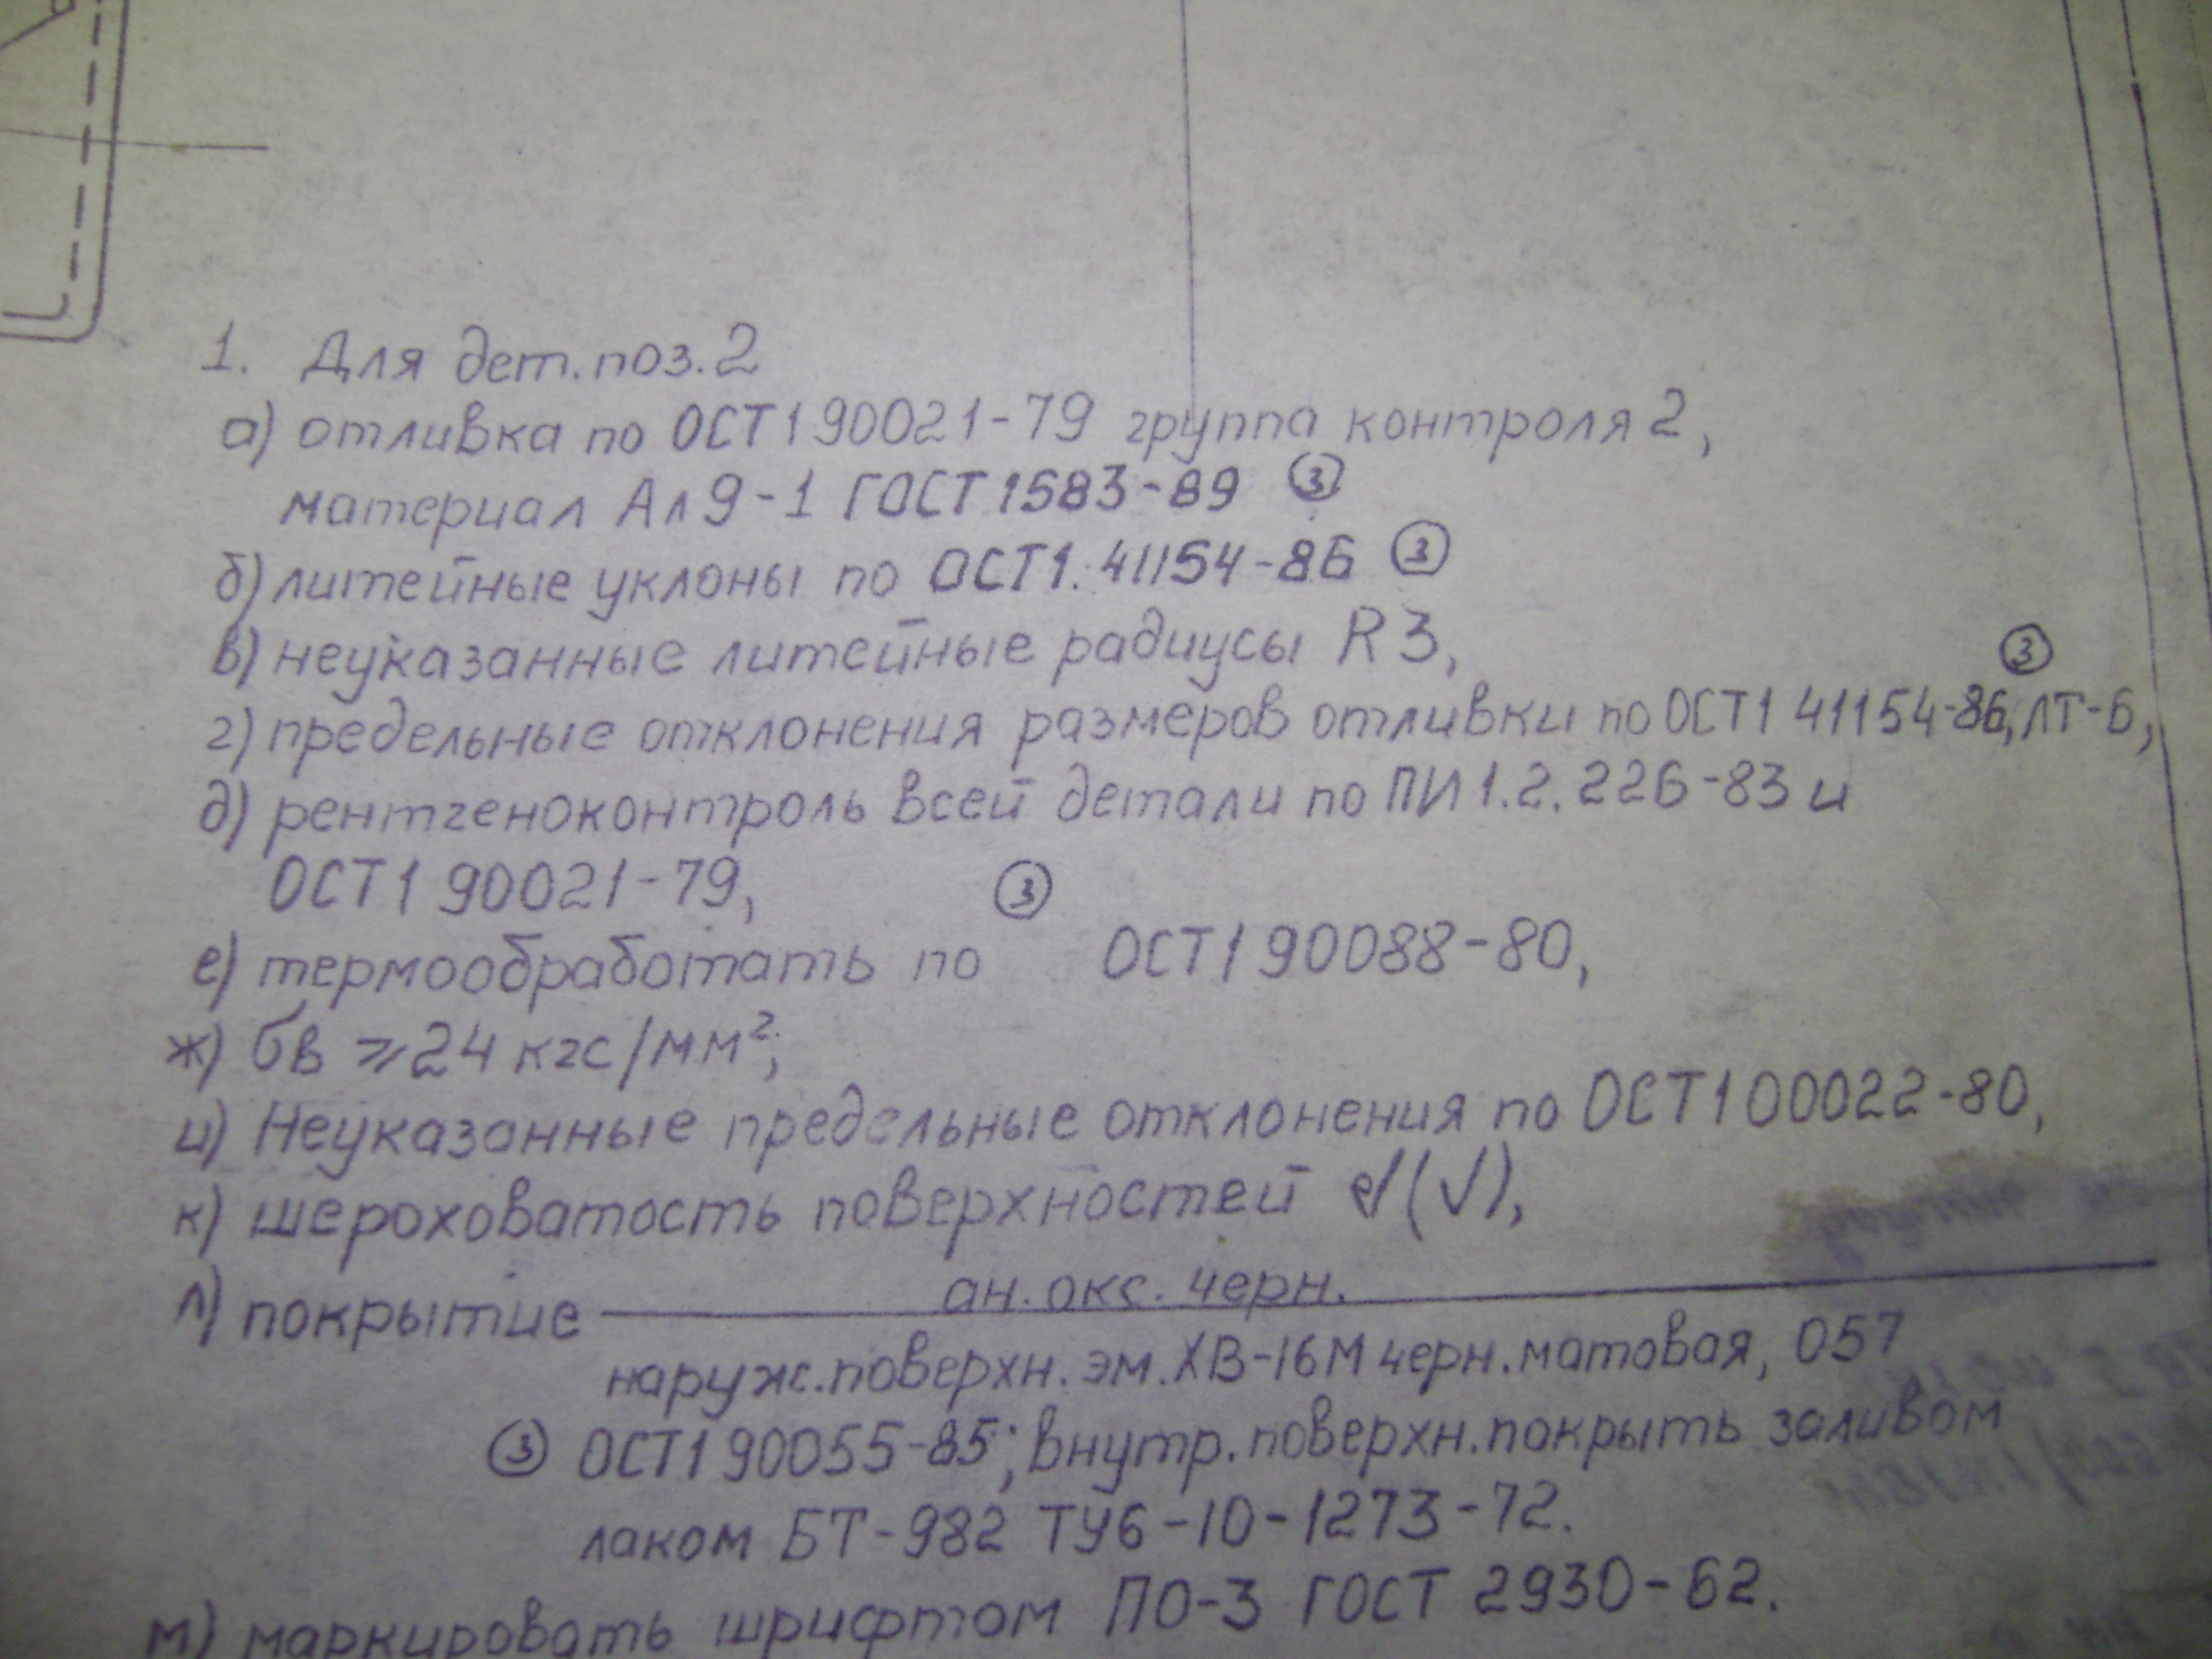 1. Для дет.поз.2
а) отливка по ОСТ1 90021-79 группа контроля 2,
материал Ал9-1 ГОСТ 1583-89 ③
б) литейные уклоны по ОСТ1. 41154-86 ③
в) неуказанные литейные радиусы R3,
③
г) предельные отклонения размеров отливки по ОСТ1 41154-86, ЛТ-6,
д) рентгеноконтроль всей детали по ПИ 1.2.226-83 и
ОСТ1 90021-79,
③
е) термообработать по ОСТ1 90088-80,
ж) σв ⩾ 24 кгс/мм²,
и) Неуказанные предельные отклонения по ОСТ1 00022-80,
к) шероховатость поверхностей √(√),
ан. окс. черн.
л) покрытие
наруж.поверхн. эм.ХВ-16М черн.матовая, 057
③ ОСТ1 90055-85; внутр.поверхн.покрыть заливом
лаком БТ-982 ТУ6-10-1273-72.
м) маркировать шрифтом ПО-3 ГОСТ 2930-62.